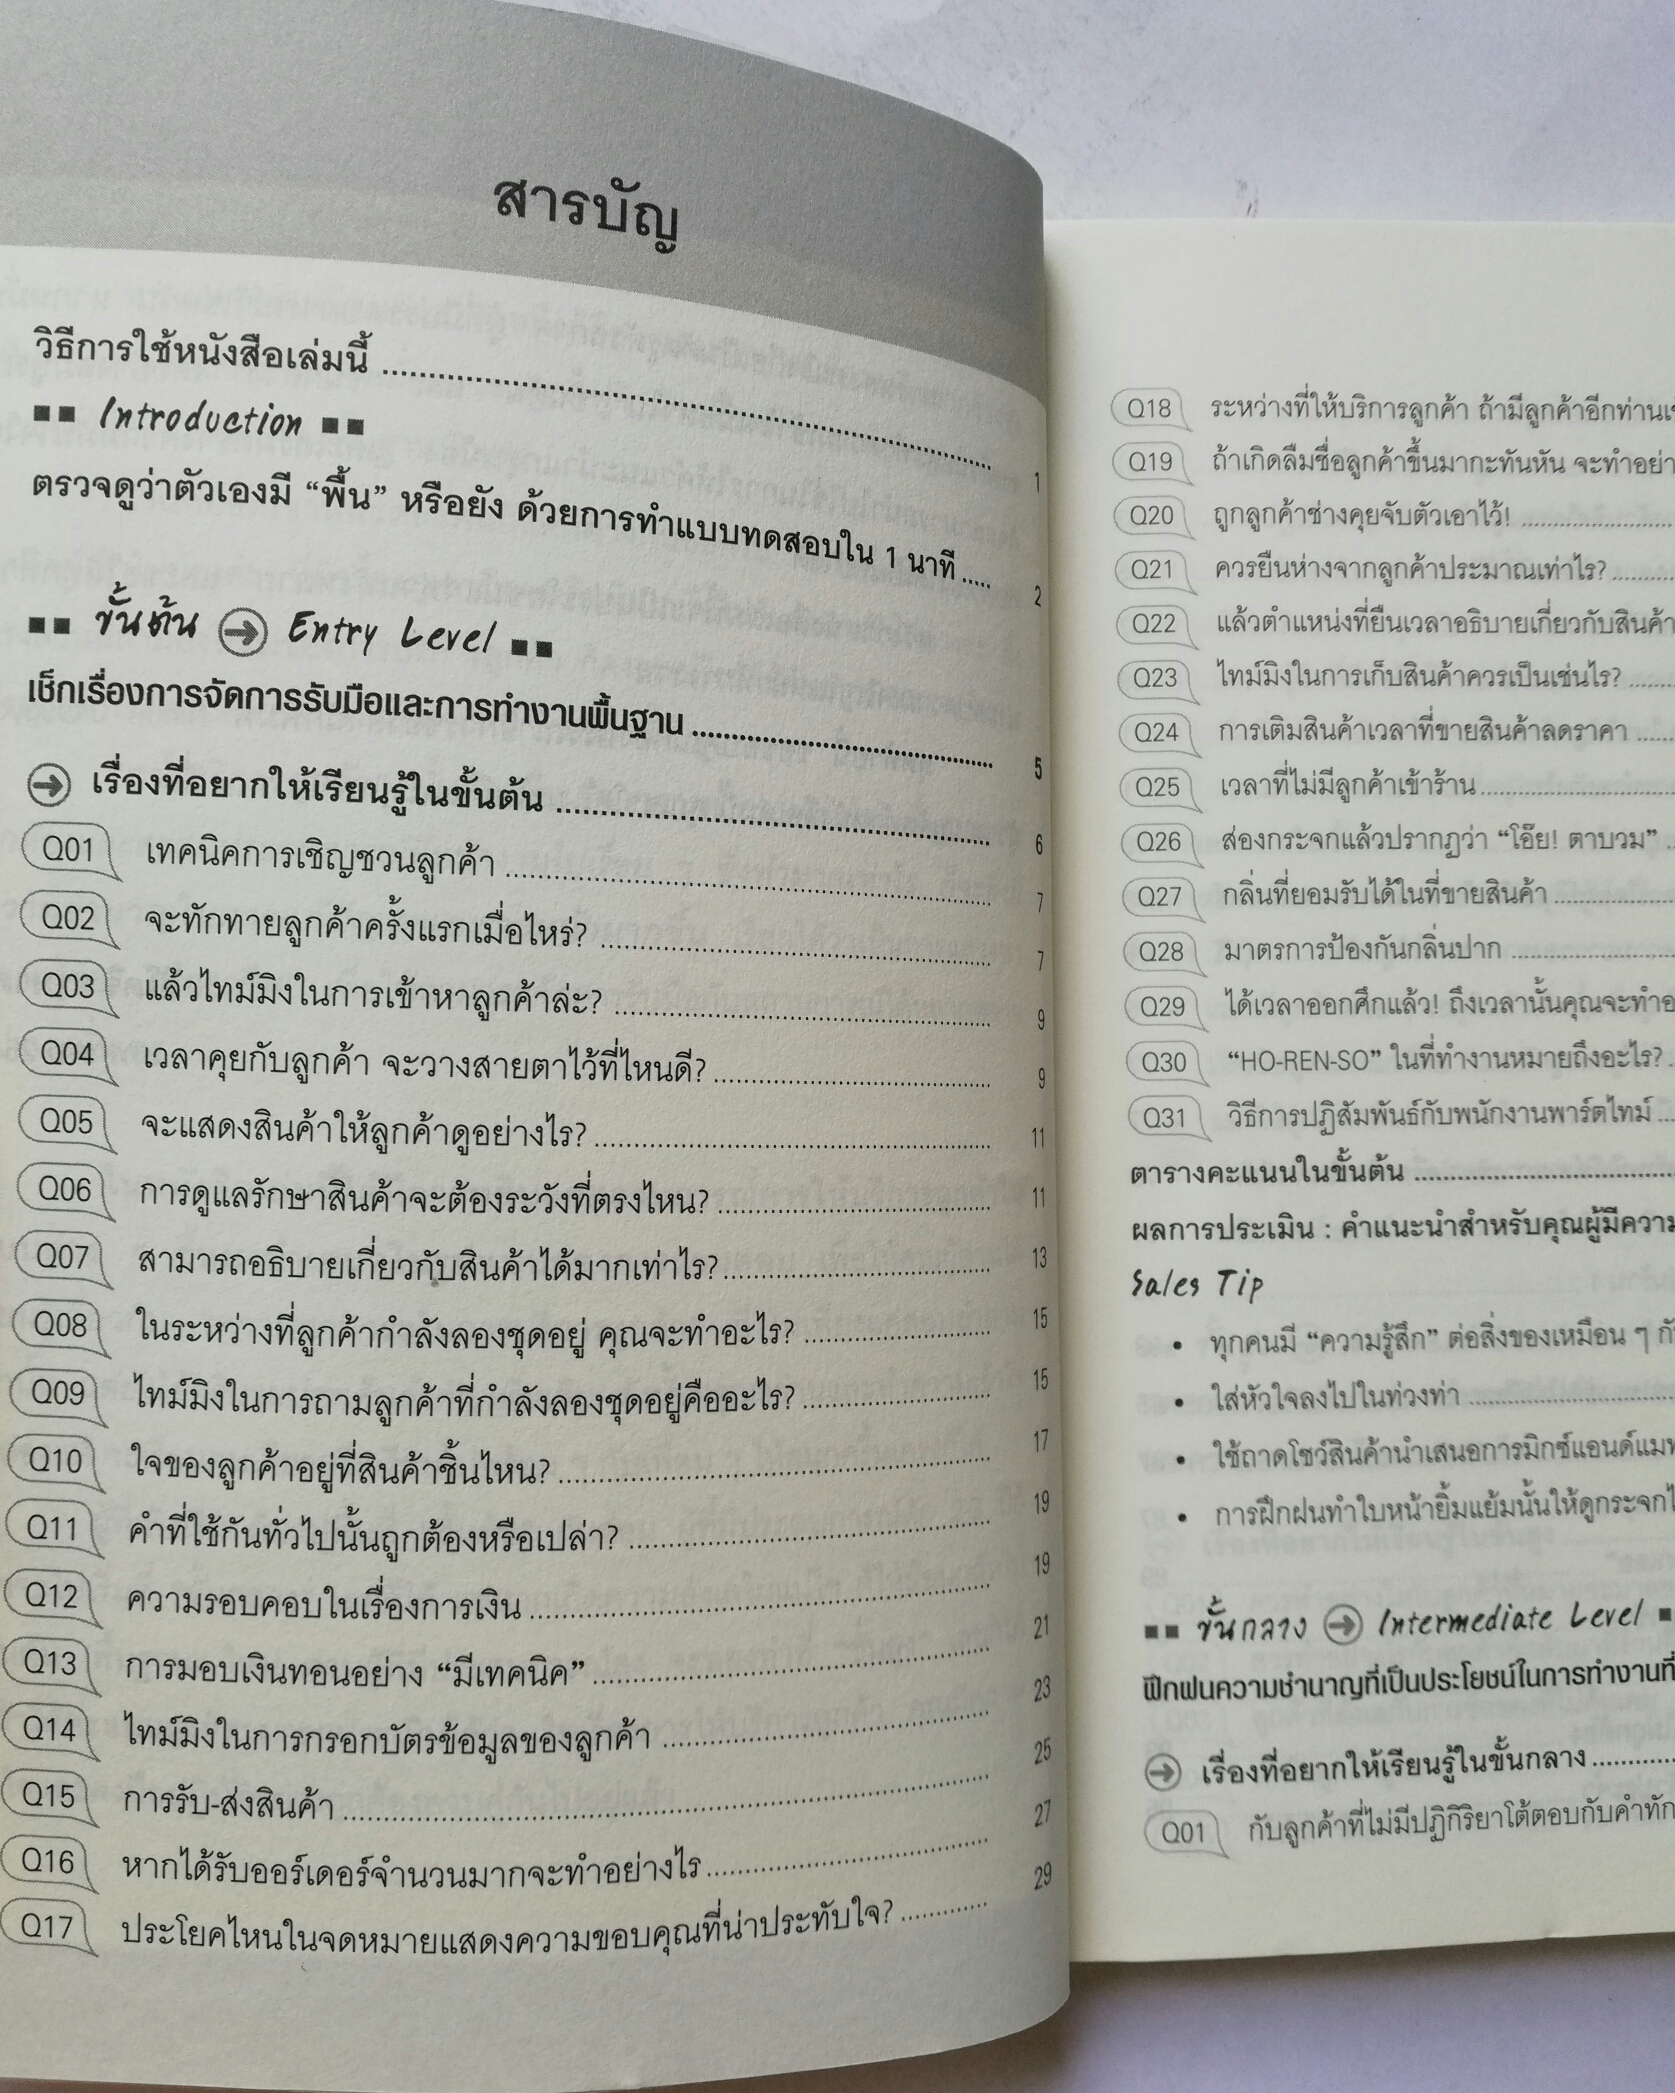 สารบัญ
วิธีการใช้หนังสือเล่มนี้ ........ 1
Introduction
ตรวจดูว่าตัวเองมี “พื้น” หรือยัง ด้วยการทำแบบทดสอบใน 1 นาที ..... 2
ขั้นต้น Entry Level
เช็กเรื่องการจัดการรับมือและการทำงานพื้นฐาน ........ 5
เรื่องที่อยากให้เรียนรู้ในขั้นต้น ........ 6
Q01 เทคนิคการเชิญชวนลูกค้า ........ 7
Q02 จะทักทายลูกค้าครั้งแรกเมื่อไหร่? ........ 7
Q03 แล้วไทม์มิงในการเข้าหาลูกค้าล่ะ? ........ 9
Q04 เวลาคุยกับลูกค้า จะวางสายตาไว้ที่ไหนดี? ........ 9
Q05 จะแสดงสินค้าให้ลูกค้าดูอย่างไร? ........ 11
Q06 การดูแลรักษาสินค้าจะต้องระวังที่ตรงไหน? ........ 11
Q07 สามารถอธิบายเกี่ยวกับสินค้าได้มากเท่าไร? ........ 13
Q08 ในระหว่างที่ลูกค้ากำลังลองชุดอยู่ คุณจะทำอะไร? ........ 15
Q09 ไทม์มิงในการถามลูกค้าที่กำลังลองชุดอยู่คืออะไร? ........ 15
Q10 ใจของลูกค้าอยู่ที่สินค้าชิ้นไหน? ........ 17
Q11 คำที่ใช้กันทั่วไปนั้นถูกต้องหรือเปล่า? ........ 19
Q12 ความรอบคอบในเรื่องการเงิน ........ 19
Q13 การมอบเงินทอนอย่าง “มีเทคนิค” ........ 21
Q14 ไทม์มิงในการกรอกบัตรข้อมูลของลูกค้า ........ 23
Q15 การรับ-ส่งสินค้า ........ 25
Q16 หากได้รับออร์เดอร์จำนวนมากจะทำอย่างไร ........ 27
Q17 ประโยคไหนในจดหมายแสดงความขอบคุณที่น่าประทับใจ? ........ 29
Q18 ระหว่างที่ให้บริการลูกค้า ถ้ามีลูกค้าอีกท่าน
Q19 ถ้าเกิดลืมชื่อลูกค้าขึ้นมากะทันหัน จะทำอย่า
Q20 ถูกลูกค้าช่างคุยจับตัวเอาไว้! ........
Q21 ควรยืนห่างจากลูกค้าประมาณเท่าไร? ........
Q22 แล้วตำแหน่งที่ยืนเวลาอธิบายเกี่ยวกับสินค้า
Q23 ไทม์มิงในการเก็บสินค้าควรเป็นเช่นไร? ........
Q24 การเติมสินค้าเวลาที่ขายสินค้าลดราคา ........
Q25 เวลาที่ไม่มีลูกค้าเข้าร้าน ........
Q26 ส่องกระจกแล้วปรากฏว่า “โอ๊ย! ตาบวม” ..
Q27 กลิ่นที่ยอมรับได้ในที่ขายสินค้า ........
Q28 มาตรการป้องกันกลิ่นปาก ........
Q29 ได้เวลาออกศึกแล้ว! ถึงเวลานั้นคุณจะทำอ
Q30 “HO-REN-SO” ในที่ทำงานหมายถึงอะไร? .
Q31 วิธีการปฏิสัมพันธ์กับพนักงานพาร์ตไทม์ ...
ตารางคะแนนในขั้นต้น ........
ผลการประเมิน : คำแนะนำสำหรับคุณผู้มีความ
Sales Tip
• ทุกคนมี “ความรู้สึก” ต่อสิ่งของเหมือน ๆ กั
• ใส่หัวใจลงไปในท่วงท่า ........
• ใช้ถาดโชว์สินค้านำเสนอการมิกซ์แอนด์แม
• การฝึกฝนทำใบหน้ายิ้มแย้มนั้นให้ดูกระจก
ขั้นกลาง Intermediate Level
ฝึกฝนความชำนาญที่เป็นประโยชน์ในการทำงานที่
เรื่องที่อยากให้เรียนรู้ในขั้นกลาง ........
Q01 กับลูกค้าที่ไม่มีปฏิกิริยาโต้ตอบกับคำทัก